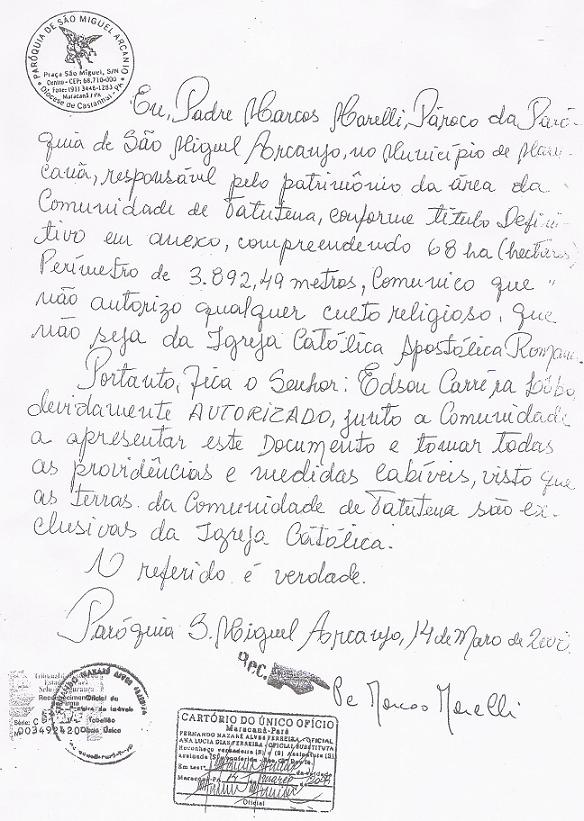 PARÓQUIA DE SÃO MIGUEL ARCANJO
Praça São Miguel, S/N
Centro - CEP: 68.710-000
Fone: (91) 3448-1283
Maracanã / PA
Diocese de Castanhal - PA
Eu, Padre Marcos Marelli, Pároco da Paró-
quia de São Miguel Arcanjo, no Município de Mara-
canã, responsável pelo patrimônio da área da
Comunidade de Tatuteua, conforme título Defini-
tivo em anexo, compreendendo 68 ha (hectares)
Perímetro de 3.892,49 metros, Comunico que
não autorizo qualquer culto religioso, que
não seja da Igreja Católica Apostólica Romana.
Portanto, fica o Senhor: Edson Carrera Lôbo,
devidamente AUTORIZADO, junto a Comunidade
a apresentar este Documento e tomar todas
as providências e medidas cabíveis, visto que
as terras da Comunidade de Tatuteua são ex-
clusivas da Igreja Católica.
O referido é verdade.
Paróquia S. Miguel Arcanjo, 14 de Março de
Rec.
Pe Marcos Marelli
Série: C
003492420
CARTÓRIO DO ÚNICO OFÍCIO
Maracanã-Pará
FERNANDO NAZARÉ ALVES FERREIRA - OFICIAL
ANA LUCIA DIAS FERREIRA - OFICIAL SUBSTITUTA
Reconheço verdadeira (S) (S) assinatura (S)
Em test°. da verdade
Maracanã-PA, 14
Oficial